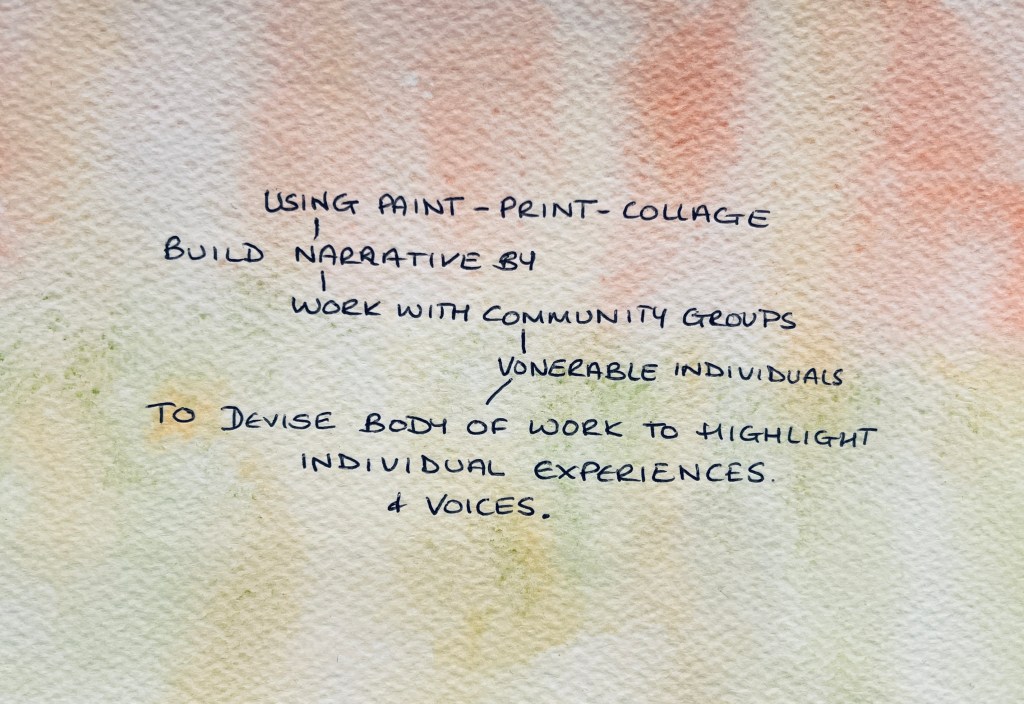 USING PAINT - PRINT - COLLAGE
BUILD NARRATIVE BY
WORK WITH COMMUNITY GROUPS
VONERABLE INDIVIDUALS
TO DEVISE BODY OF WORK TO HIGHLIGHT
INDIVIDUAL EXPERIENCES.
& VOICES.